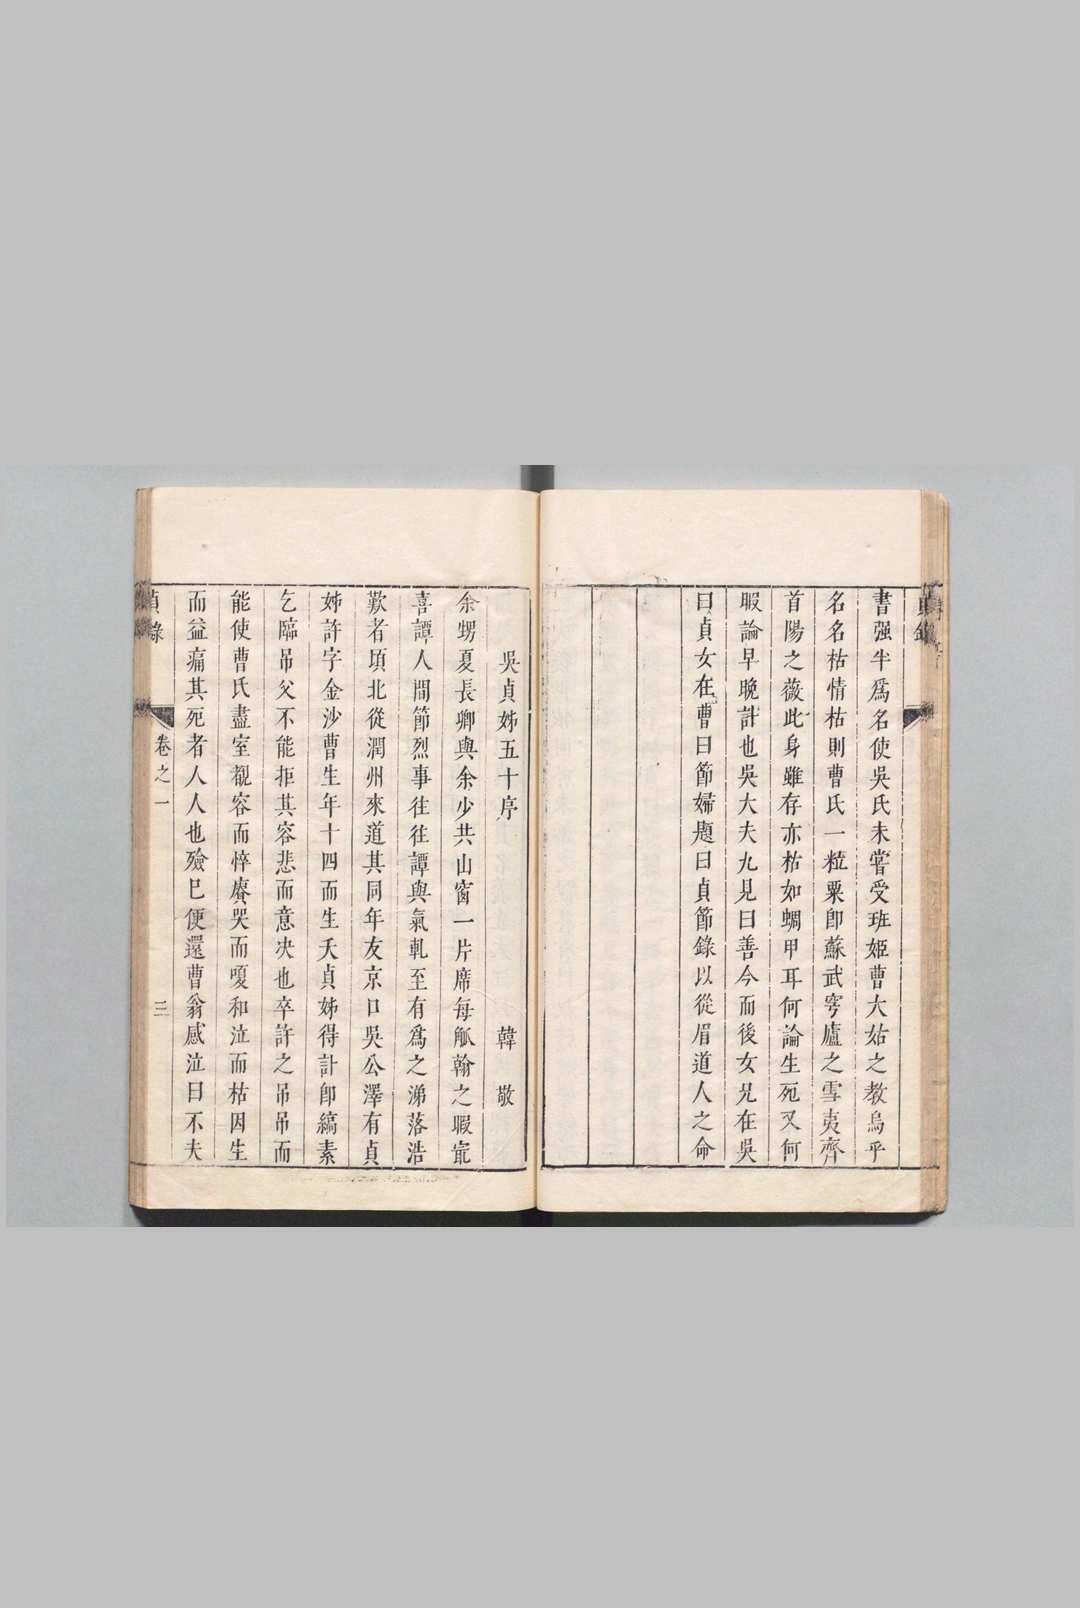 書强半爲名使吳氏未嘗受班姬曹大姑之敎烏乎
名名枯情枯則曹氏一粒粟卽蘇武窖廬之雪夷齊
首陽之薇此身雖存亦枯如蜩甲耳何論生死又何
暇論早晚計也吳大夫九見曰善今而後女兄在吳
曰貞女在曹曰節婦題曰貞節錄以從眉道人之命
吳貞姊五十序 韓敬
余甥夏長卿與余少共山窗一片席每觚翰之暇寉
喜譚人間節烈事往往譚與氣軋至有爲之涕落浩
歎者頃北從潤州來道其同年友京口吳公澤有貞
姊許字金沙曹生年十四而生夭貞姊得訃卽縞素
乞臨吊父不能拒其容悲而意决也卒許之吊吊而
能使曹氏盡室覩容而悴賡哭而嗄和泣而枯因生
而益痛其死者人人也殮已便還曹翁感泣曰不夫
貞錄
卷之一
三